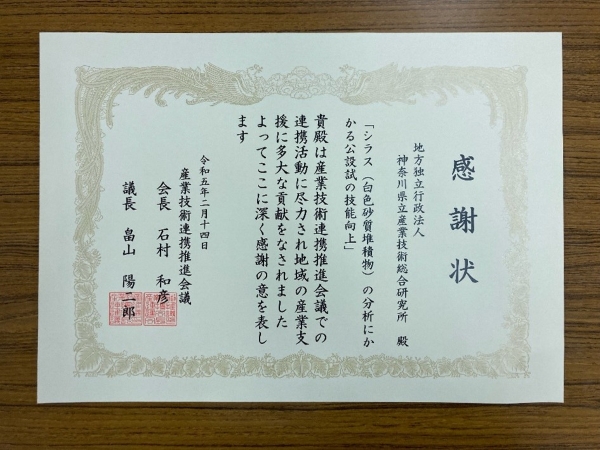 感謝状
地方独立行政法人
神奈川県立産業技術総合研究所 殿
「シラス（白色砂質堆積物）の分析にか
かる公設試の技能向上」
貴殿は産業技術連携推進会議での
連携活動に尽力され地域の産業支
援に多大な貢献をなされました
よってここに深く感謝の意を表し
ます
令和五年二月十四日
産業技術連携推進会議
会長 石村 和彦
議長 畠山 陽二郎